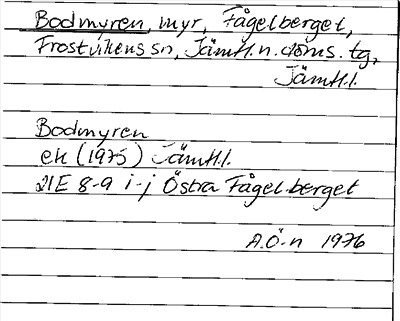 Bodmyren, myr, Fågelberget,
Frostvikens sn, Jämtl.n. doms. tg,
Jämtl.l.
Bodmyren
ek (1975) Jämtl.l.
21E 8-9 i-j Östra Fågelberget
A.Ö-n 1976